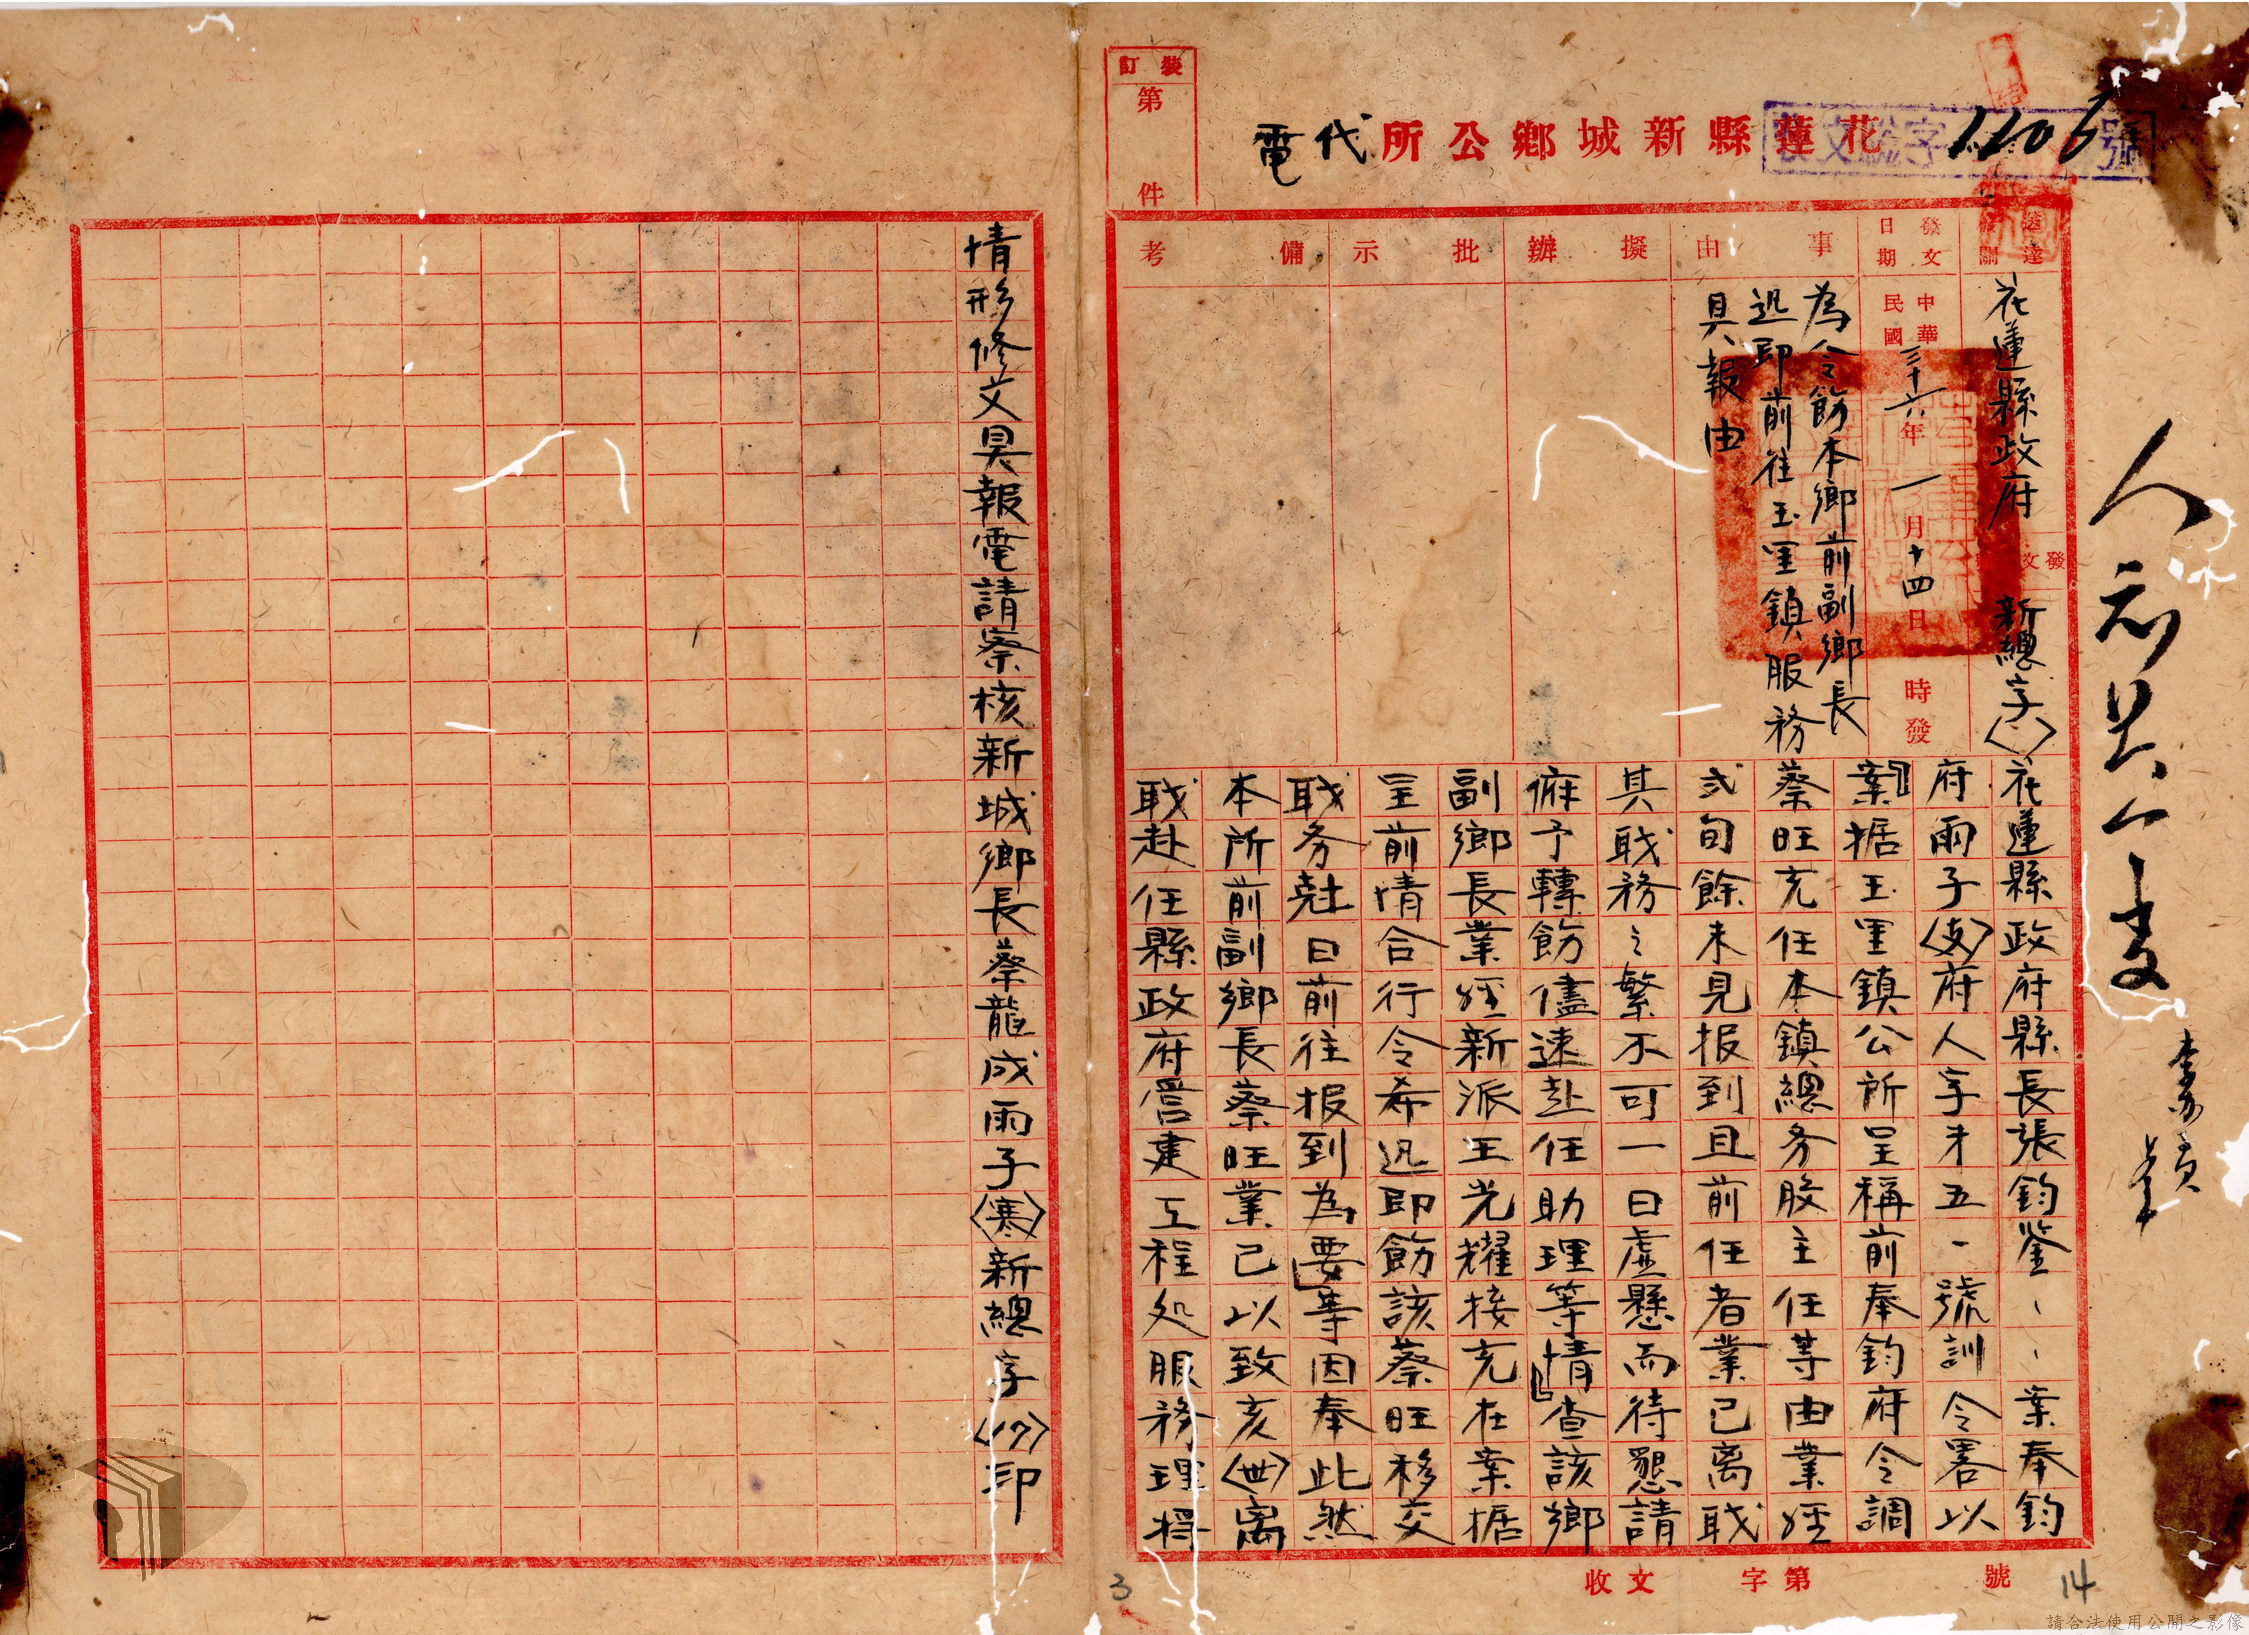 花蓮縣新城鄉公所代電
裝訂
第
件
發文總字
1106
號
送達
機關
花蓮縣政府
發文
新總字
發文
日期
中華
民國
三十六年一月十四日
時發
事由
為令飭本鄉前副鄉長
迅即前往玉里鎮服務
具報由
擬辦
批示
備考
花蓮縣政府縣長張鈞鉴、、、業奉鈞
府雨子府人字才五一號訓令畧以
案『据玉里鎮公所呈稱前奉鈞府令調
蔡旺充任本鎮總务股主任等由業経
式旬餘未見报到且前任者業已离职
其职務之繁不可一日虛懸而待懇請
俯予轉飭儘速赴任助理等情』查該鄉
副鄉長業経新派王光耀接充在案据
呈前情合行令希迅即飭該蔡旺移交
职务尅日前往报到為要」等因奉此然
本所前副鄉長蔡旺業已以致亥〈世〉离
职赴任縣政府营建工程处服務理将
情形修文具報電請察核新城鄉長蔡龍成雨子〈寒〉新總字印
收文
字第
號
3
14
請合法使用公開之影像